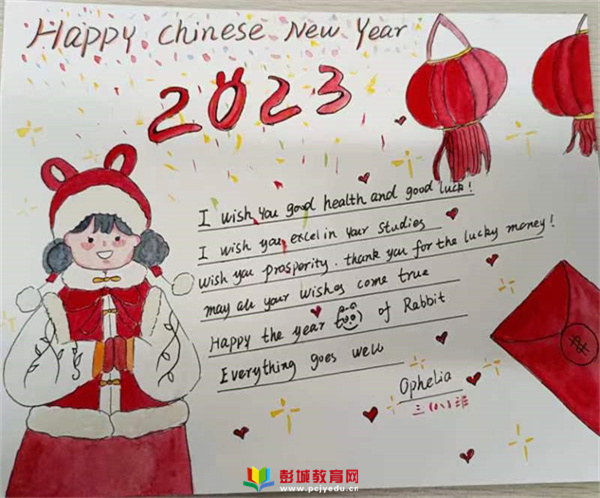 Happy Chinese New Year
2023
I wish you good health and good luck!
I wish you excel in your studies
wish you prospority. thank you for the lucky money!
may all your wishes come true
Happy the year of Rabbit
Everything goes well
Ophelia
三(八)班
彭城教育网
www.pcjyedu.cn